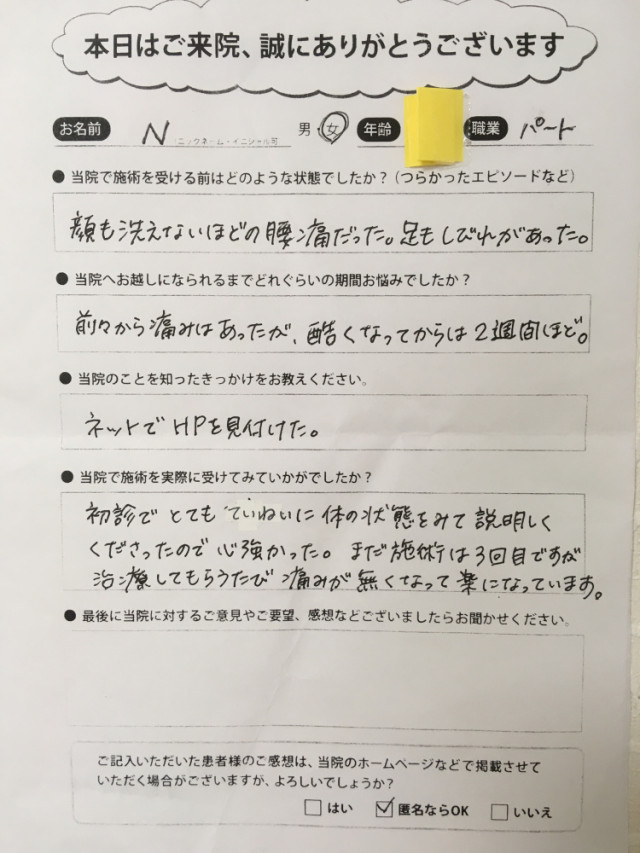 本日はご来院、誠にありがとうございます
お名前 N ニックネーム・イニシャル可 男 女 年齢 職業 パート
● 当院で施術を受ける前はどのような状態でしたか？（つらかったエピソードなど）
顔も洗えないほどの腰痛だった。足もしびれがあった。
● 当院へお越しになられるまでどれぐらいの期間お悩みでしたか？
前々から痛みはあったが、酷くなってからは2週間ほど。
● 当院のことを知ったきっかけをお教えください。
ネットでHPを見付けた。
● 当院で施術を実際に受けてみていかがでしたか？
初診でとてもていねいに体の状態をみて説明しく
くださったので心強かった。まだ施術は3回目ですが
治療してもらうたび痛みが無くなって楽になっています。
● 最後に当院に対するご意見やご要望、感想などございましたらお聞かせください。
ご記入いただいた患者様のご感想は、当院のホームページなどで掲載させて
いただく場合がございますが、よろしいでしょうか？
□ はい ☑ 匿名ならOK □ いいえ